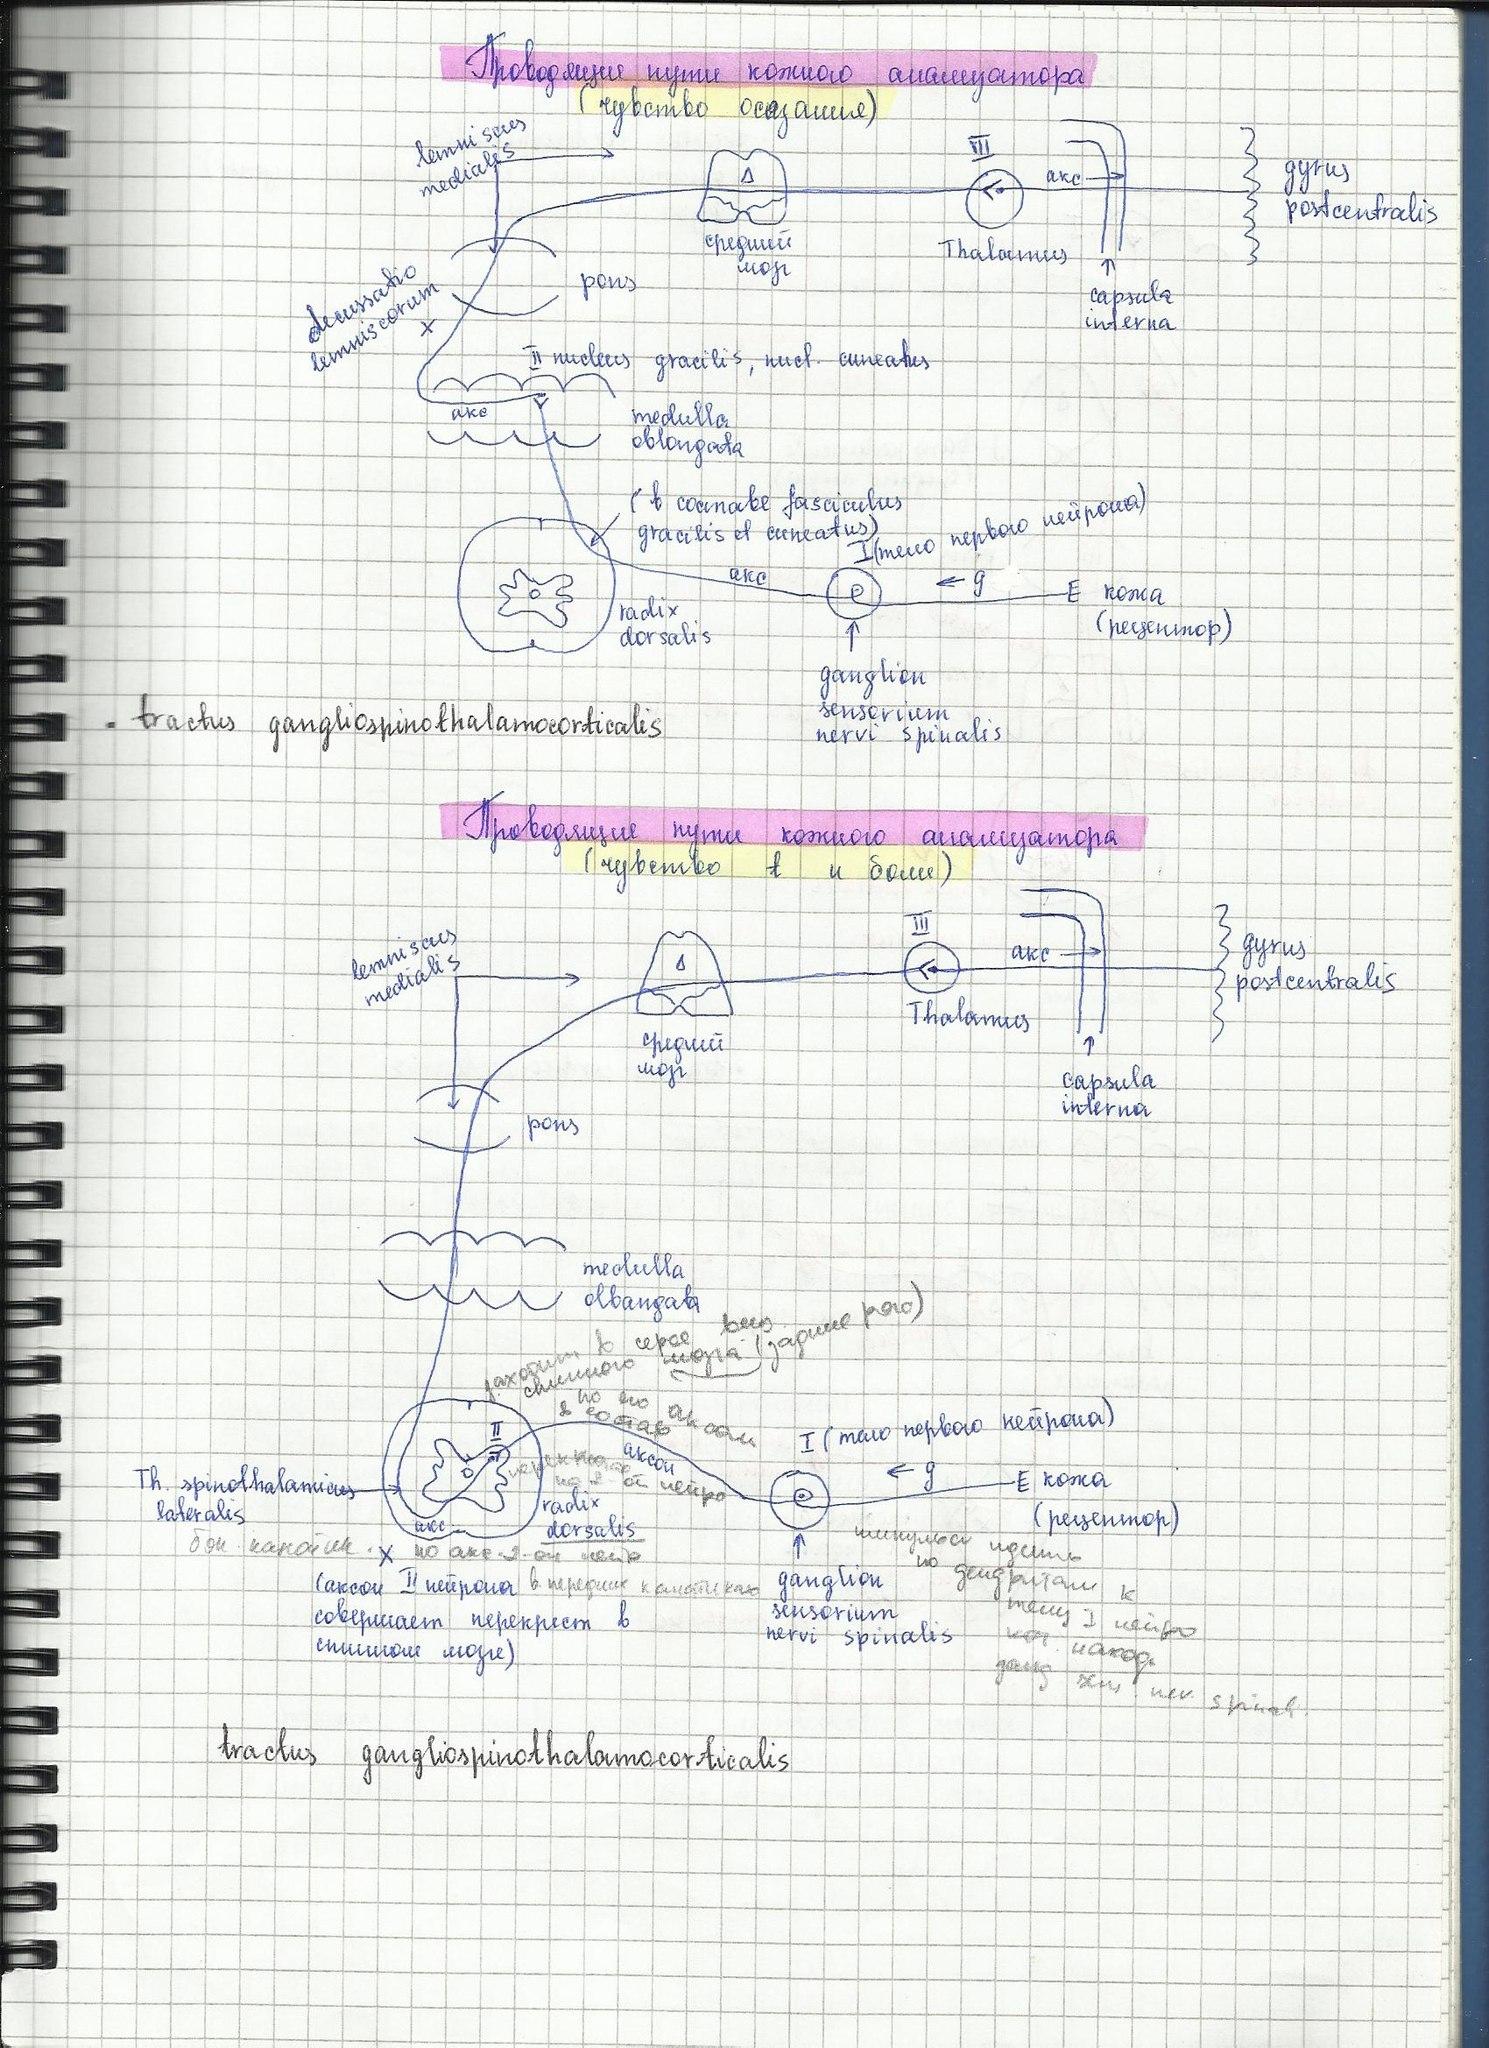 Проводящие пути кожного анализатора
(чувство осязания)
lemniscus
medialis
III
акс
gyrus
postcentralis
средний
мозг
Thalamus
capsula
interna
pons
decussatio
lemniscorum
II nucleus gracilis, nucl. cuneatus
акс
medulla
oblongata
(в составе fasciculus
gracilis et cuneatus)
I (тело первого нейрона)
акс
← g
E кожа
(рецептор)
radix
dorsalis
ganglion
sensorium
nervi spinalis
. tractus gangliospinothalamocorticalis
Проводящие пути кожного анализатора
(чувство t и боли)
lemniscus
medialis
III
акс
gyrus
postcentralis
средний
мозг
Thalamus
capsula
interna
pons
medulla
olbangata
в серое вещ.
спинного мозга (задние рога)
по его аксом
в состав
II
аксон
I (тело первого нейрона)
← g
E кожа
(рецептор)
Th. spinothalamicus
lateralis
акс
radix
dorsalis
бок. канатик.
X по акс 2-ом нейро
(аксон II нейрона в передних канатиках
совершает перекрест в
спинном мозге)
ganglion
sensorium
nervi spinalis
импульсы идет
по дендритам к
телу I нейро
наход.
spinal.
tractus gangliospinothalamocorticalis